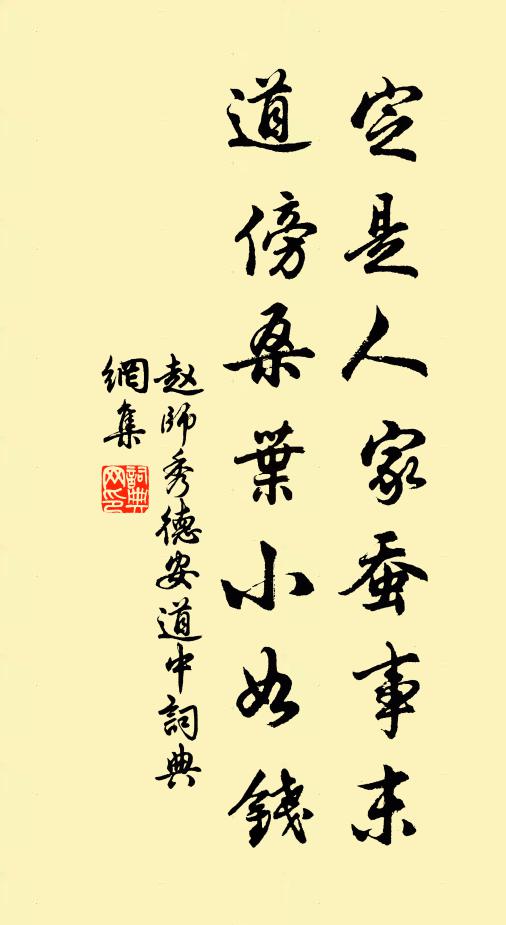 定是人家蚕事未
道傍桑葉小如錢
赵師秀德安道中詞典
網集
詞典網印